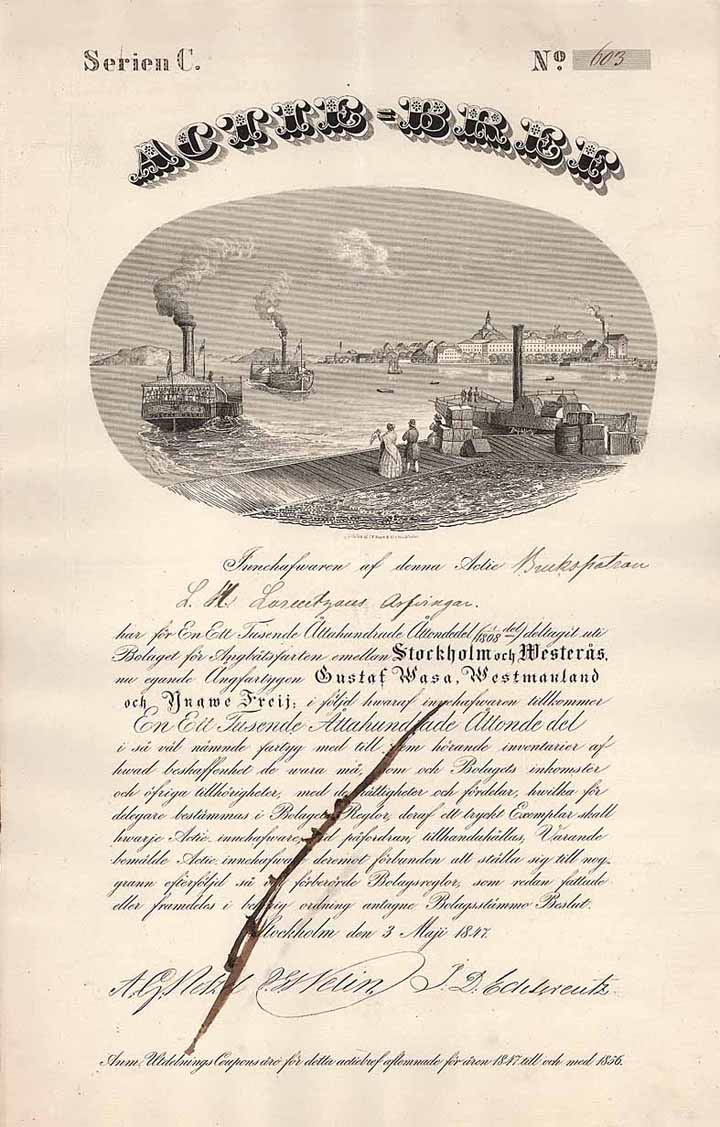 Serien C.
No. 603
ACTIE=BREF
Innehafwaren af denna Actie Brukspatron
L. H. Lorentzons Arfvingar.
har för En Ett Tusende Åttahundrade Åttondedel (1/1808 del) deltagit uti
Bolaget för Ångbåtsfarten emellan Stockholm och Westerås,
nu egande Ångfartygen Gustaf Wasa, Westmanland
och Yngwe Freij; i följd hwaraf innehafwaren tillkommer
En Ett Tusende Åttahundrade Åttonde del
i så väl nämnde fartyg med till dem hörande inventarier af
hwad beskaffenhet de wara må, som och Bolagets inkomster
och öfriga tillhörigheter, med de rättigheter och fördelar, hwilka för
delegare bestämmas i Bolagets Reglor, deraf ett tryckt Exemplar skall
hwarje Actie innehafware, vid påfordran, tillhandahållas, Varande
bemälde Actie innehafware deremot förbunden att ställa sig till nog-
grann efterföljd så väl förberörde Bolagsreglor, som redan fattade
eller framdeles i behörig ordning antagne Bolagsstämmo Beslut.
Stockholm den 3 Maji 1847.
A. G. Welin J. D.
Anm. Utdelnings Coupons äro för detta actiebref aflemnade för åren 1847 till och med 1856.